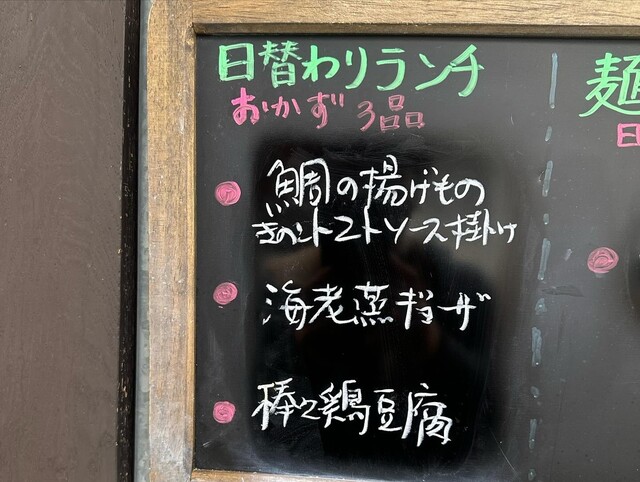 日替わりランチ
おかず3品
鯛の揚げもの
きのこトマトソース掛け
海老蒸ギョーザ
棒々鶏豆腐
麺
日